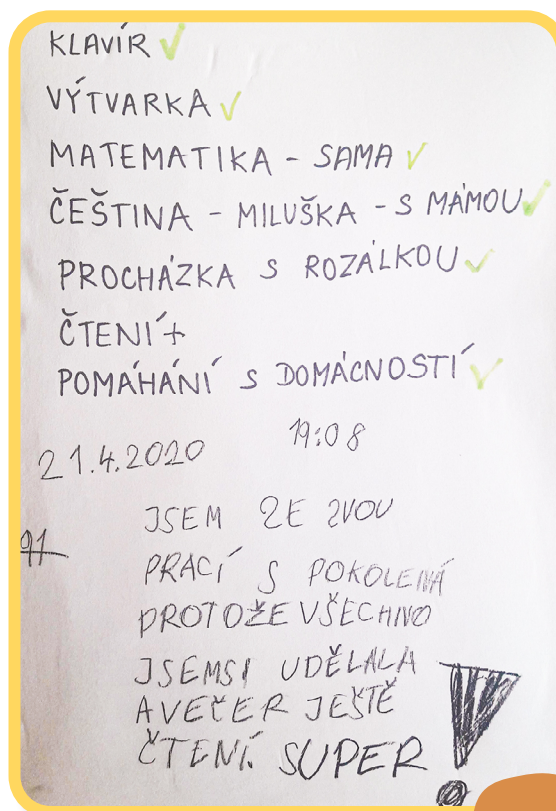 KLAVÍR
VÝTVARKA
MATEMATIKA - SAMA
ČEŠTINA - MILUŠKA - S MÁMOU
PROCHÁZKA S ROZÁLKOU
ČTENÍ +
POMÁHÁNÍ S DOMÁCNOSTÍ
21.4.2020 19:08
JSEM ZE SVOU
PRACÍ S POKOLENÁ
PROTOŽE VŠECHNO
JSEMSI UDĚLALA
AVEČER JEŠTĚ
ČTENÍ. SUPER!